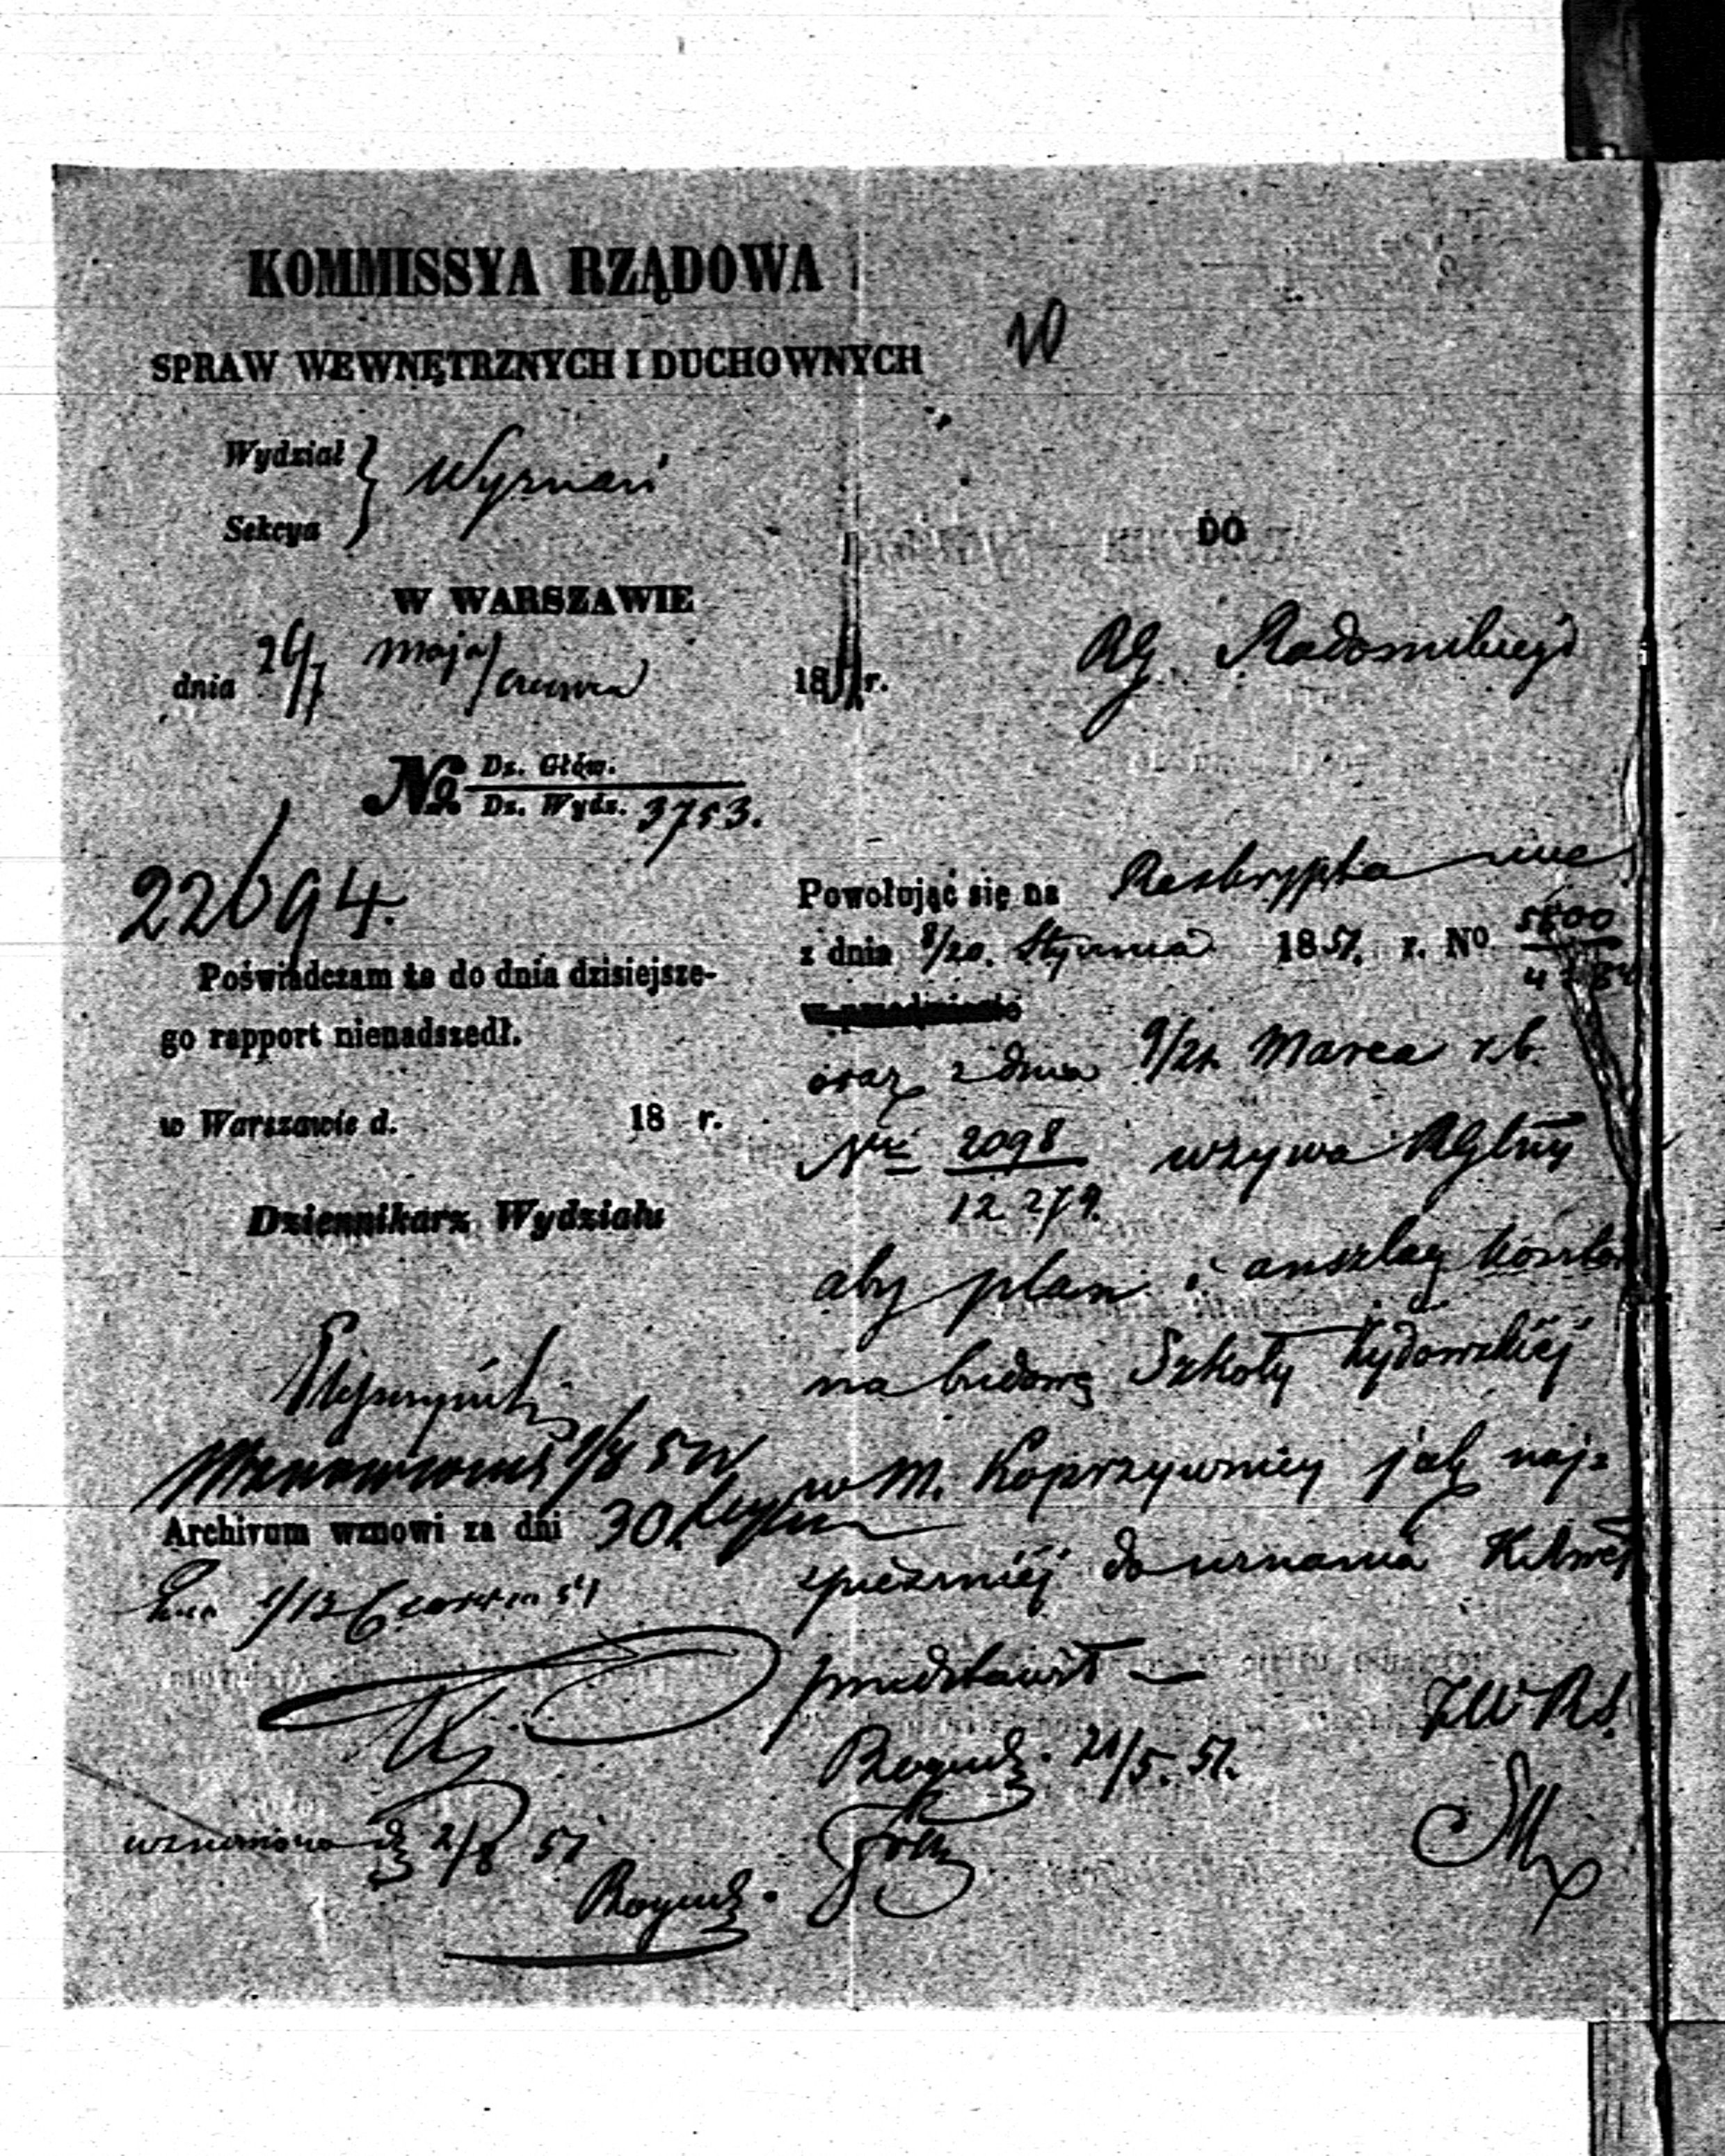 KOMMISSYA RZĄDOWA
SPRAW WEWNĘTRZNYCH I DUCHOWNYCH
20
Wydział
Sekcya
Wyznań
W WARSZAWIE
dnia 26/7 Maja/Czerwca 1851 r.
No Dz. Głów.
Dz. Wydz. 3753.
22694.
Poświadczam że do dnia dzisiejsze-
go rapport nienadszedł.
w Warszawie d. 18 r.
Dziennikarz Wydziału
Archivum wznowi za dni 30.
1/13 Czerwca 51
wznowiono 2/8 51
DO
RG Radomskiego
Powołując się na Reskrypta swe
z dnia 8/20. Stycznia 1851. r. No 5800
oraz z dnia 9/21. Marca r.b.
Nr 2098
12279.
wzywa RGlny
aby plan i anszlag kosztów
na budowę Szkoły Żydowskiej
w M. Koprzywnicy jak naj-
spieszniéj do uznania
przedstawił —
21/5. 51.